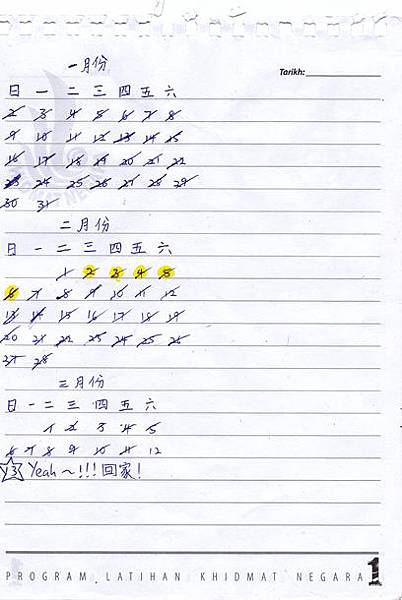 一月份
Tarikh:
日 一 二 三 四 五 六
2 3 4 5 6 7 8
9 10 11 12 13 14 15
16 17 18 19 20 21 22
23 24 25 26 27 28 29
30 31
二月份
日 一 二 三 四 五 六
1 2 3 4 5
6 7 8 9 10 11 12
13 14 15 16 17 18 19
20 21 22 23 24 25 26
27 28
三月份
日 一 二 三 四 五 六
1 2 3 4 5
6 7 8 9 10 11 12
13 Yeah~!!! 回家!
PROGRAM LATIHAN KHIDMAT NEGARA 1